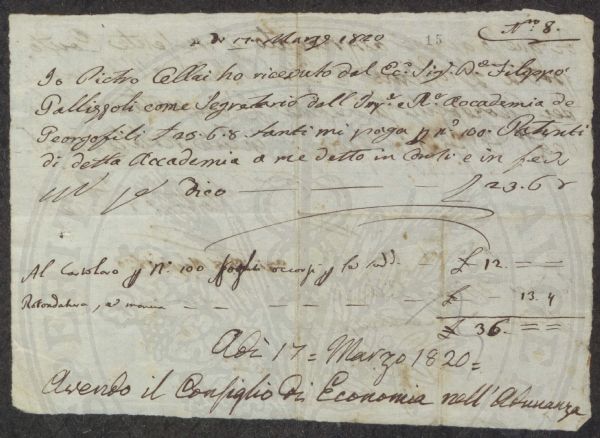 A dì 17 Marzo 1820
15
N.º 8.
Io Pietro Cellai ho ricevuto dal Ec.º Sig.r D.e Filippo
Gallizioli come Segretario dell Imp.e e R.e Accademia de
Georgofili £ 23.6.8 tanti mi paga p n.º 100 Patenti
di detta Accademia a me detto in Conti e in fede
dico £ 23.6.8
Al Cartolaro p N.º 100 fogli occorsi p le sudd. £ 12. = =
Rotondatura, e £ 13.4
£ 36. = =
Adì 17 = Marzo 1820 =
Avendo il Consiglio di Economia nell'Adunanza